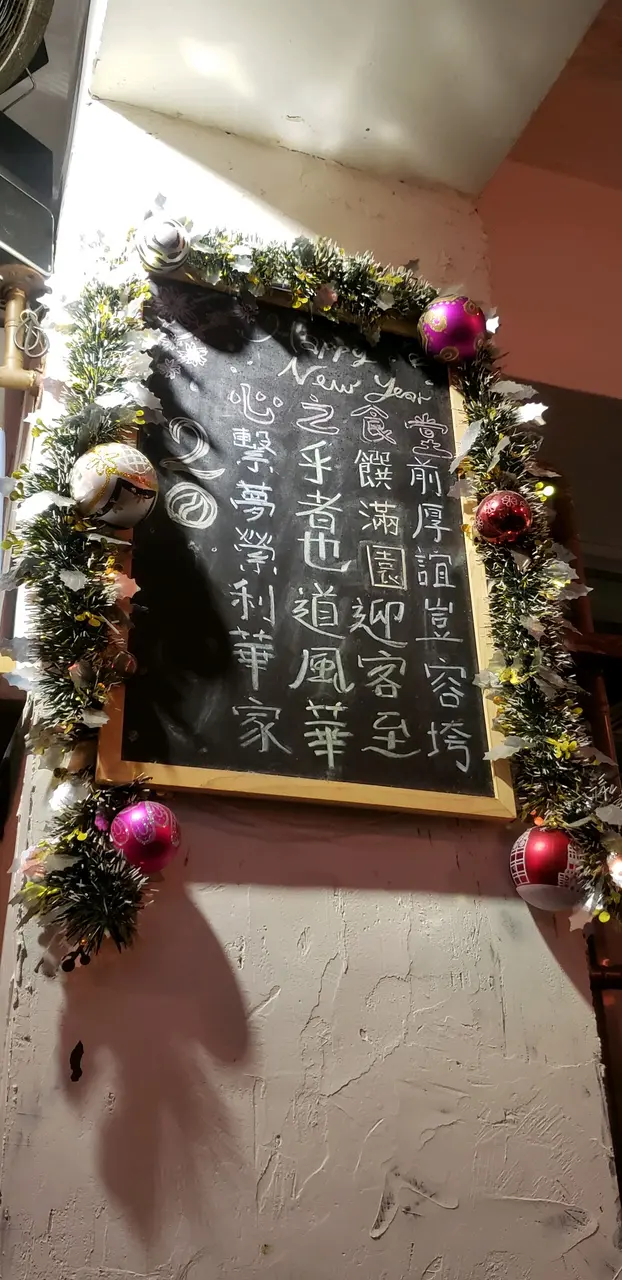 Happy
New Year
20
20
堂前厚誼豈容垮
食饌滿園迎客至
之乎者也道風華
心繫夢縈利華家